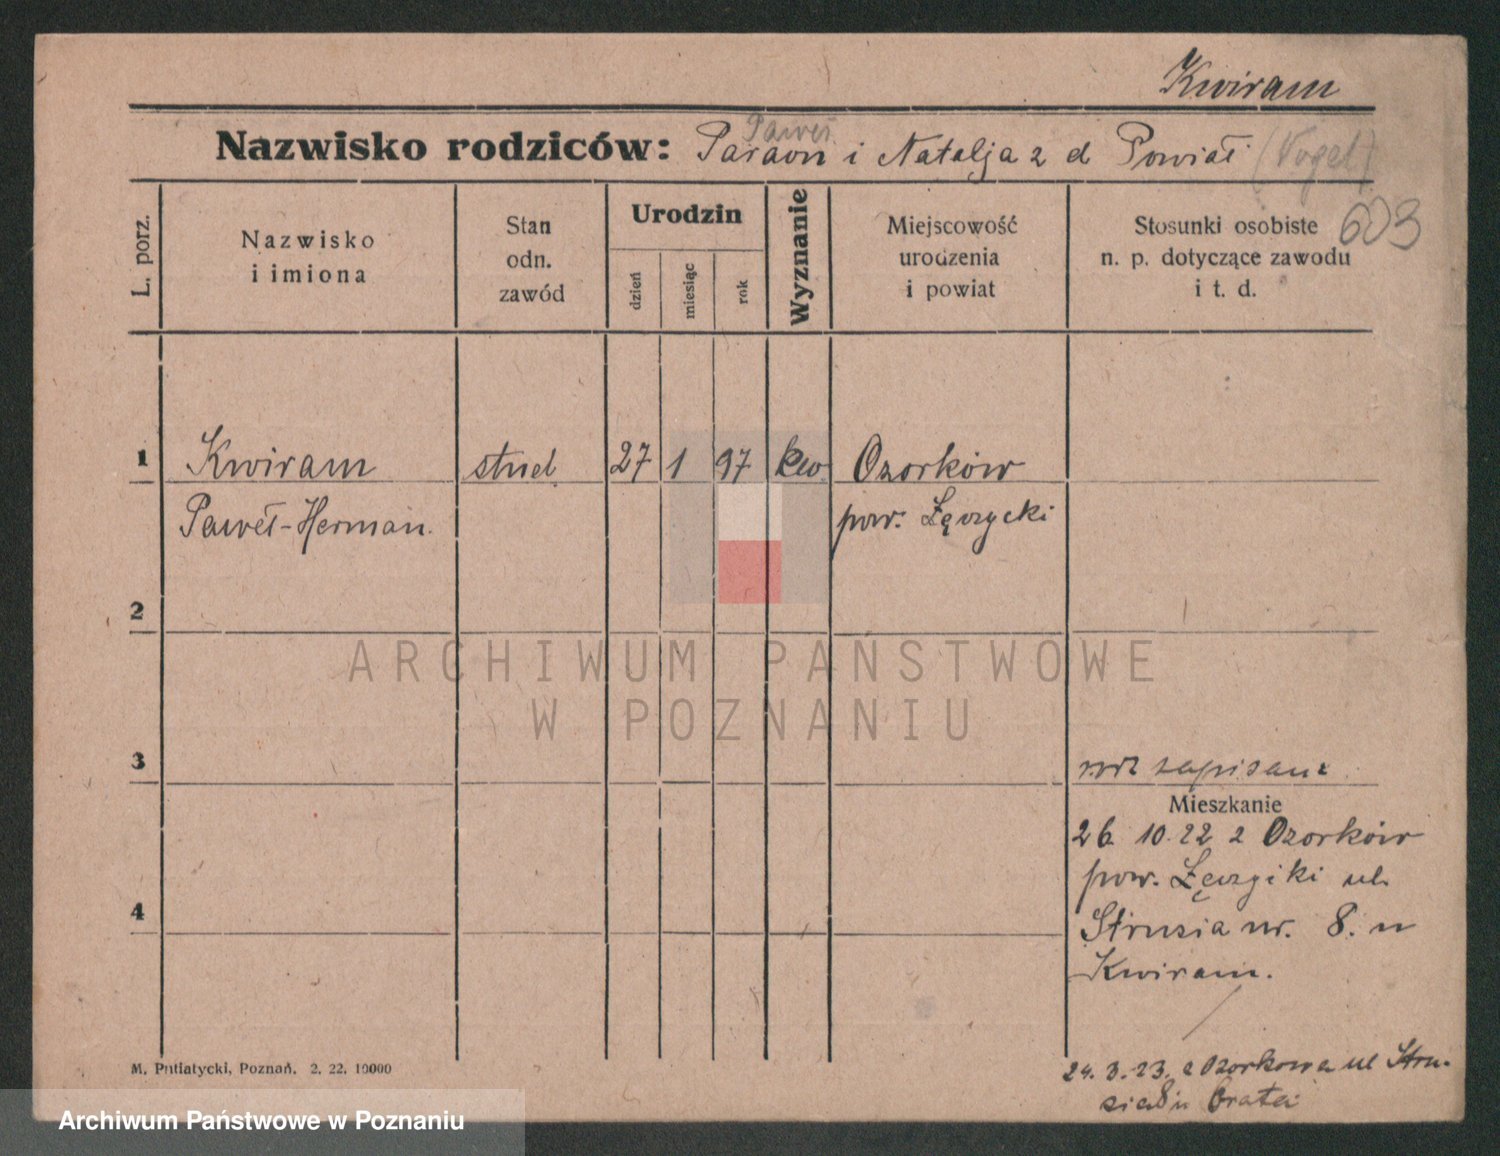 Kwiram
Paweł
Nazwisko rodziców: Paraon i Natalja z d Powiał (Vogel)
603
L. porz.
Nazwisko
i imiona
Stan
odn.
zawód
Urodzin
dzień
miesiąc
rok
Wyznanie
Miejscowość
urodzenia
i powiat
Stosunki osobiste
n. p. dotyczące zawodu
i t. d.
1 Kwiram stud 27 1 97 kw Ozorków
Paweł-Herman. pow. Łęczycki
2
3
zapisany
Mieszkanie
26 10.22 z Ozorków
pow. Łęczycki ul.
4
Strusia nr. 8. u
Kwiram.
24.3.23. z Ozorkowa ul Stru-
sia 8 u brata
M. Putiatycki, Poznań. 2. 22. 10000
ARCHIWUM PAŃSTWOWE
W POZNANIU
Archiwum Państwowe w Poznaniu